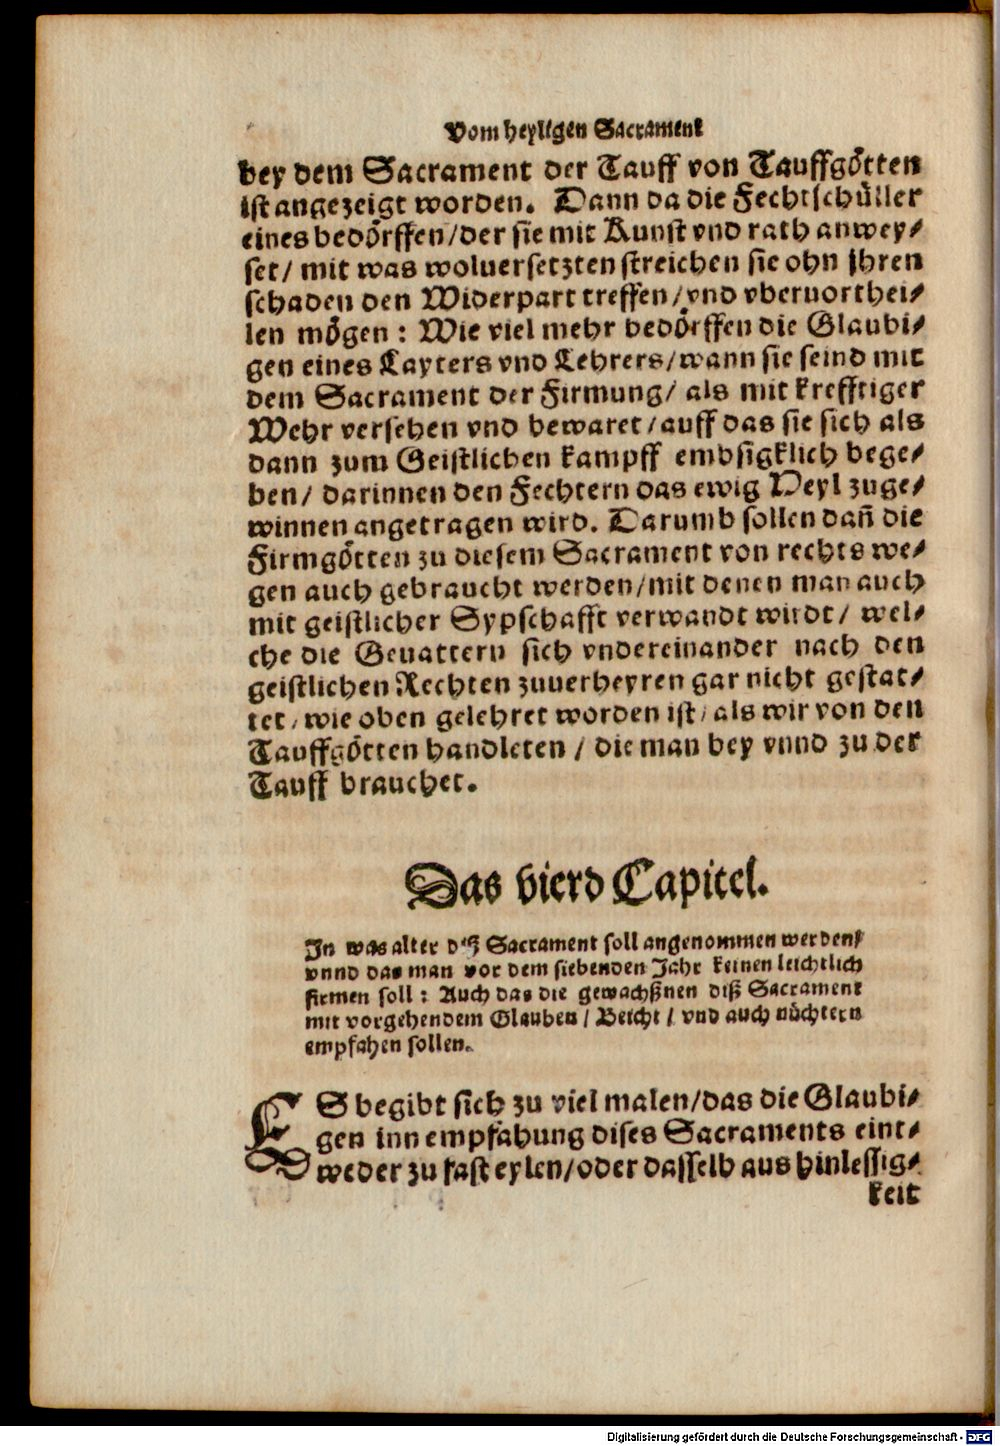 Vom heyligen Sacrament
bey dem Sacrament der Tauff von Tauffgötten
ist angezeigt worden. Dann da die Fechtschüller
eines bedörffen/der sie mit Kunst vnd rath anwey⸗
set/ mit was woluersetzten streichen sie ohn jhren
schaden den Widerpart treffen/vnd vberuorthei⸗
len mögen : Wie viel mehr bedörffen die Glaubi⸗
gen eines Layters vnd Lehrers/wann sie seind mit
dem Sacrament der Firmung/ als mit krefftiger
Wehr versehen vnd bewaret/auff das sie sich als
dann zum Geistlichen kampff embsigklich bege⸗
ben/ darinnen den Fechtern das ewig Heyl zuge⸗
winnen angetragen wird. Darumb sollen dañ die
Firmgötten zu diesem Sacrament von rechts we⸗
gen auch gebraucht werden/mit denen man auch
mit geistlicher Sypschafft verwandt wirdt/ wel⸗
che die Geuattern sich vndereinander nach den
geistlichen Rechten zuuerheyren gar nicht gestat⸗
tet/wie oben gelehret worden ist/als wir von den
Tauffgötten handleten / die man bey vnnd zu der
Tauff brauchet.
Das vierd Capitel.
In was alter diß Sacrament soll angenommen werden/
vnnd das man vor dem siebenden Jahr keinen leichtlich
firmen soll : Auch das die gewachßnen diß Sacrament
mit vorgehendem Glauben / Beicht / vnd auch nüchtern
empfahen sollen.
ES begibt sich zu viel malen/das die Glaubi⸗
gen inn empfahung dises Sacraments eint⸗
weder zu fast eylen/oder dasselb aus hinlessig⸗
keit
Digitalisierung gefördert durch die Deutsche Forschungsgemeinschaft - DFG